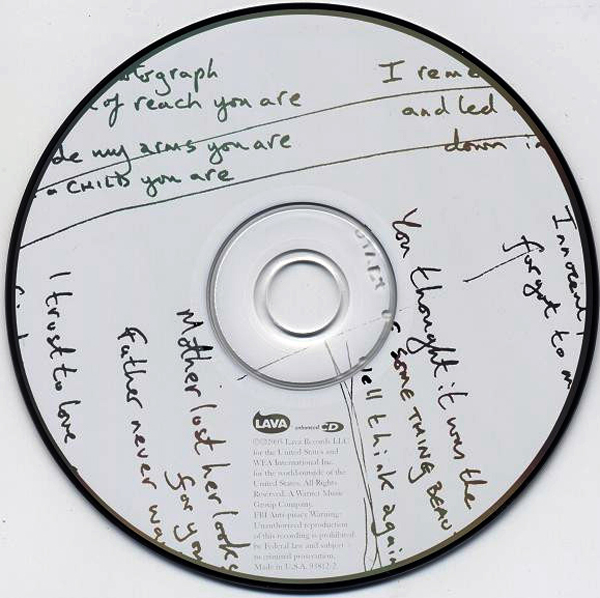 of reach you are
my arms you are
a CHILD you are
I
and led
down
Innocent
forgot to
You thought it was the
SOMETHING
think again
I trust to love
Mother lost her looks
for you
Father never
LAVA
enhanced CD
©℗2005 Lava Records LLC
for the United States and
WEA International Inc.
for the world outside of the
United States. All Rights
Reserved. A Warner Music
Group Company.
FBI Anti-piracy Warning:
Unauthorized reproduction
of this recording is prohibited
by Federal law and subject
to criminal prosecution.
Made in U.S.A. 93812-2